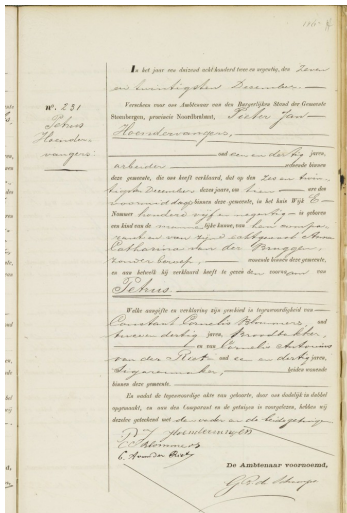 N°. 231
Petrus
Hoendervangers
In het jaar een duizend acht honderd twee en negentig, den zeven
en twintigsten December
Verscheen voor ons Ambtenaar van den Burgerlijken Stand der Gemeente
Steenbergen, provincie Noordbrabant, Pieter Jan
Hoendervangers,
oud een en dertig jaren,
arbeider wonende binnen
deze gemeente, die ons heeft verklaard, dat op den zes en twin-
tigsten December dezes jaars, ten tien ure des
voormiddags binnen deze gemeente, in het huis Wijk E
Nummer honderd vijf en negentig is geboren
een kind van de mannelijke kunne, van hem compa-
rant en van zijne echtgenoot Anna
Catharina van der Bruggen,
zonder beroep, wonende binnen deze gemeente,
en aan hetwelk hij verklaard heeft te geven den voornaam van
Petrus.
Welke aangifte en verklaring zijn geschied in tegenwoordigheid van
Constant Cornelis Blommers, oud
twee en dertig jaren, Broodbakker,
en van Cornelis Antonius
van der Riet oud een en dertig jaren,
Sigarenmaker, beiden wonende
binnen deze gemeente.
En nadat de tegenwoordige akte van geboorte, door ons dadelijk in dubbel
opgemaakt, en aan den Comparant en de getuigen is voorgelezen, hebben wij
dezelve geteekend met den vader en de beide getuigen
P J Hoendervangers
C C Blommers
C. A van der Riet
De Ambtenaar voornoemd,